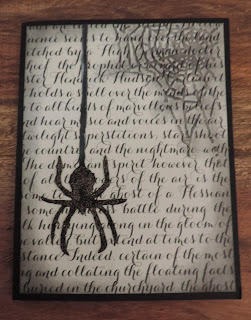 uence seems to hang over the land
witched by a High German doctor
prophet or wizard of his
ster Hendrick Hudson. Certain
holds a spell over the minds of the
to all kinds of marvellous beliefs
nd hear music and voices in the air
twilight superstitions; stars shoot
country and the nightmare with
The do spirit however that
of all of the air is the
ghost of a Hessian
some battle during the
hurrying on in the gloom of
valley but end at times to the
stance. Indeed, certain of the most
and collating the floating facts
buried in the churchyard the ghost